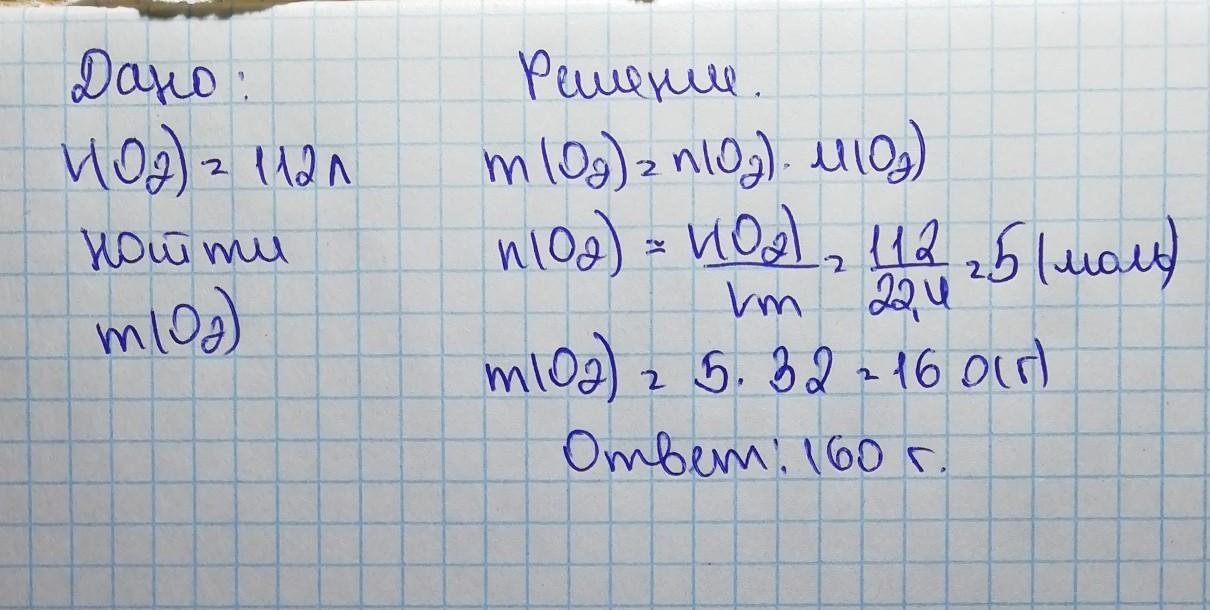 Дано:
V(O2) = 112л
найти
m(O2)
Решение.
m(O2) = n(O2) · M(O2)
n(O2) = V(O2)/Vm = 112/22,4 = 5 (моль)
m(O2) = 5 · 32 = 160(г)
Ответ: 160 г.